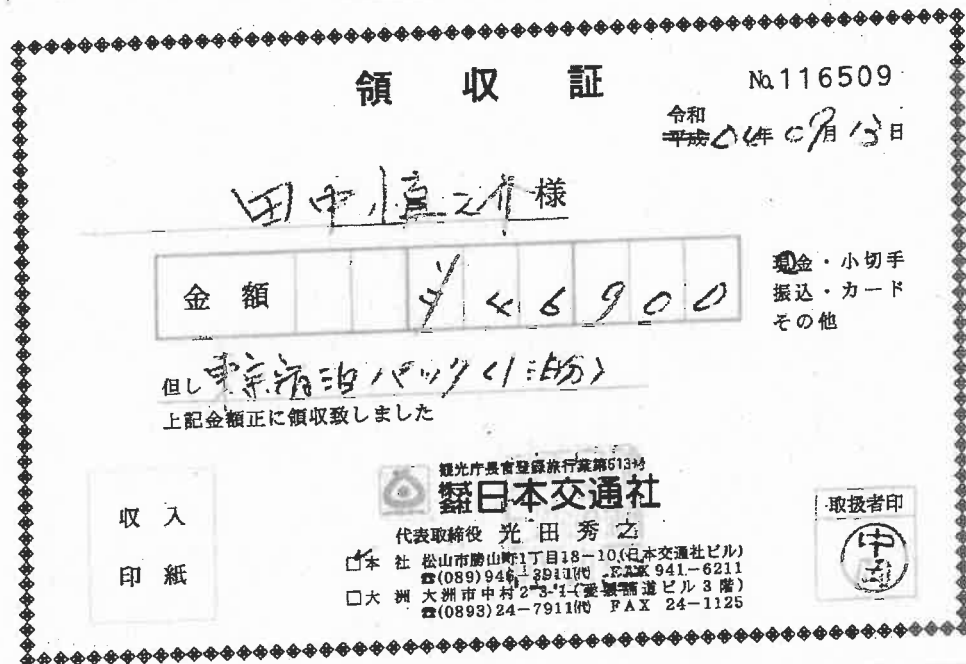 領収証
No.116509
令和
平成04年09月13日
田中慎之介様
金額 ¥46900
現金・小切手
振込・カード
その他
但し東京宿泊パック(1泊分)
上記金額正に領収致しました
収入
印紙
観光庁長官登録旅行業第513号
株式会社日本交通社
代表取締役 光田秀之
本社 松山市勝山町1丁目18-10(日本交通社ビル)
☎(089)946-3911(代) FAX 941-6211
大洲 大洲市中村
☎(0893)24-7911(代) FAX 24-1125
取扱者印